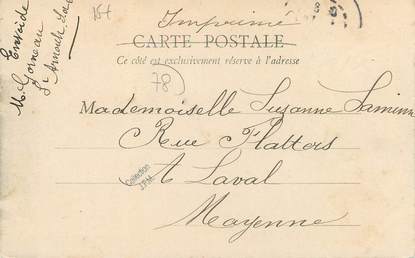 Imprimé
CARTE POSTALE
Ce côté est exclusivement réservé à l'adresse
Envoi de
M. Gorneau
St
78
Mademoiselle Suzanne
Rue Flatters
A Laval
Mayenne
Collection
J.P.M.